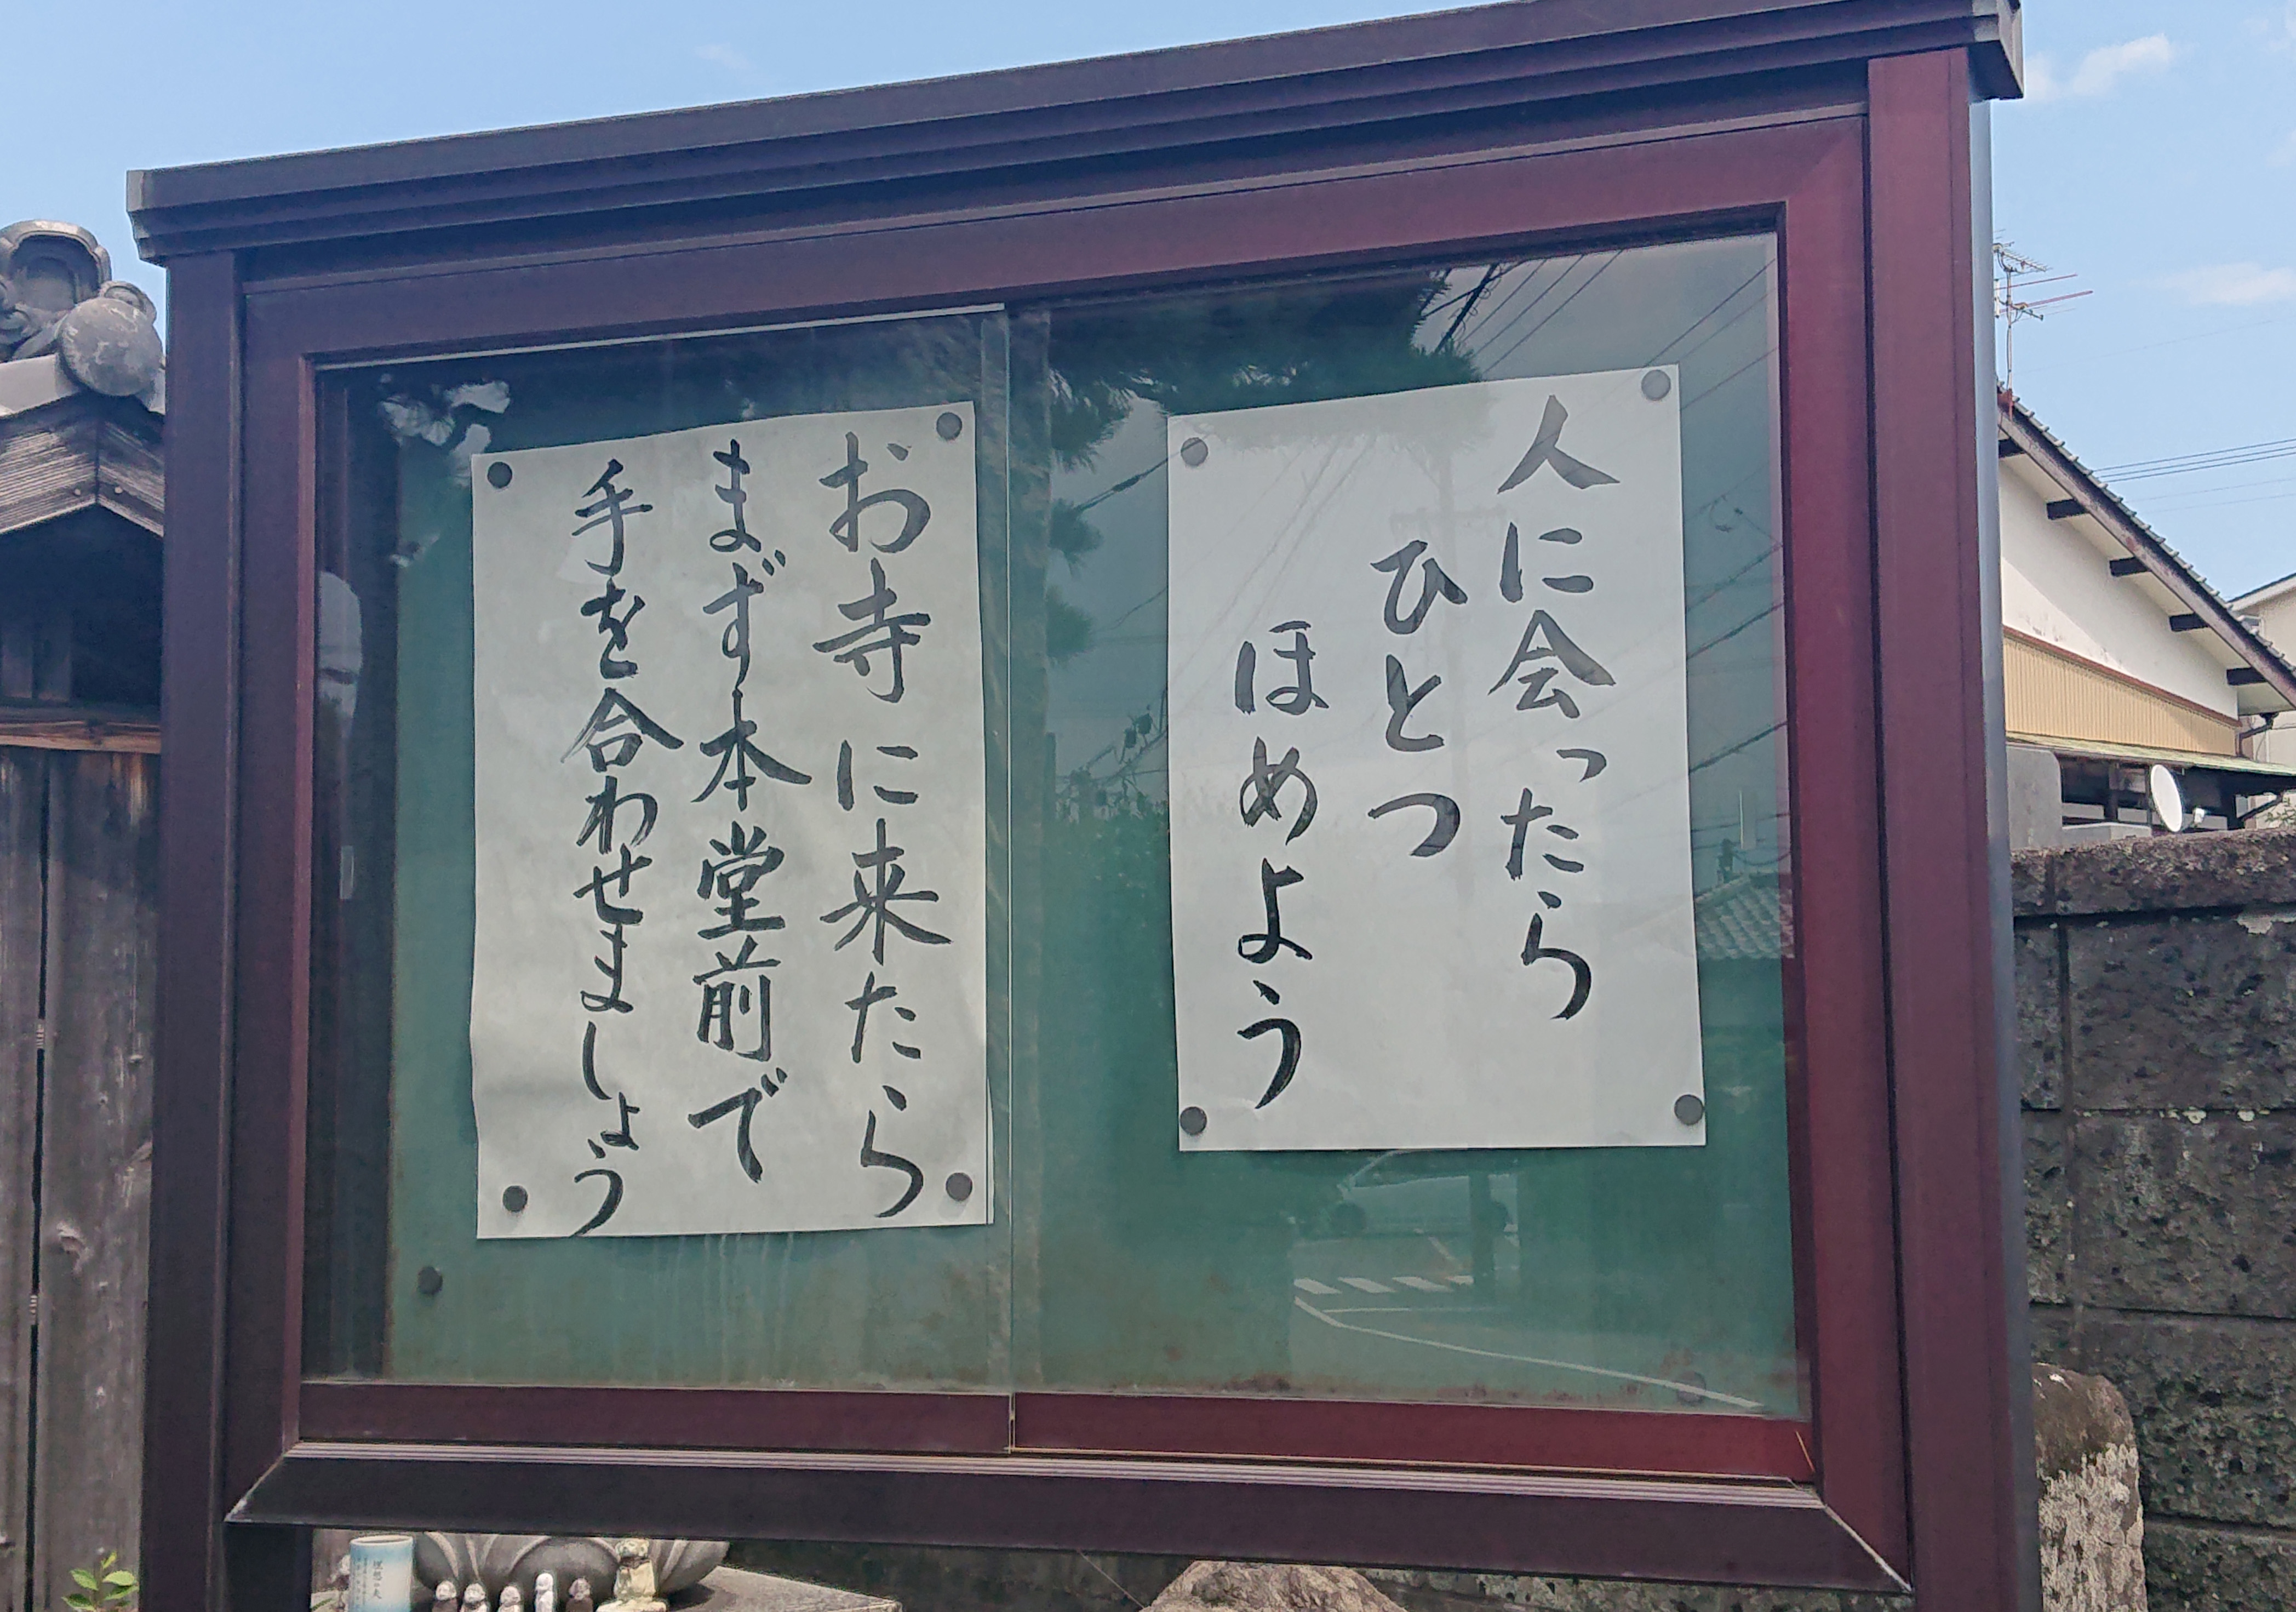 人に会ったら
ひとつ
ほめよう
お寺に来たら
まず本堂前で
手を合わせましょう